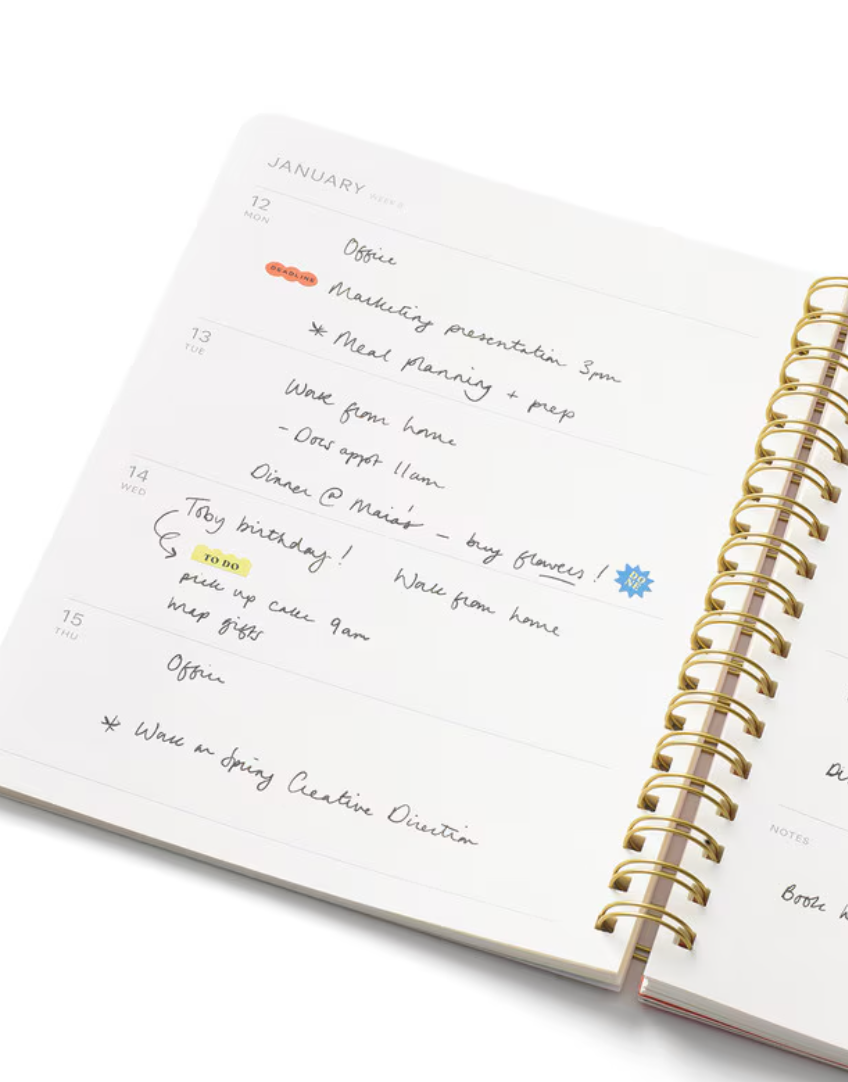 JANUARY
12
MON
Office
DEADLINE
Marketing presentation 3pm
* Meal planning + prep
13
TUE
Work from home
- Docs appt 11am
Dinner @ Maia's - buy flowers!
DONE
14
WED
Toby birthday!
Work from home
TO DO
pick up cake 9am
wrap gifts
15
THU
Office
* Work on Spring Creative Direction
NOTES
Book